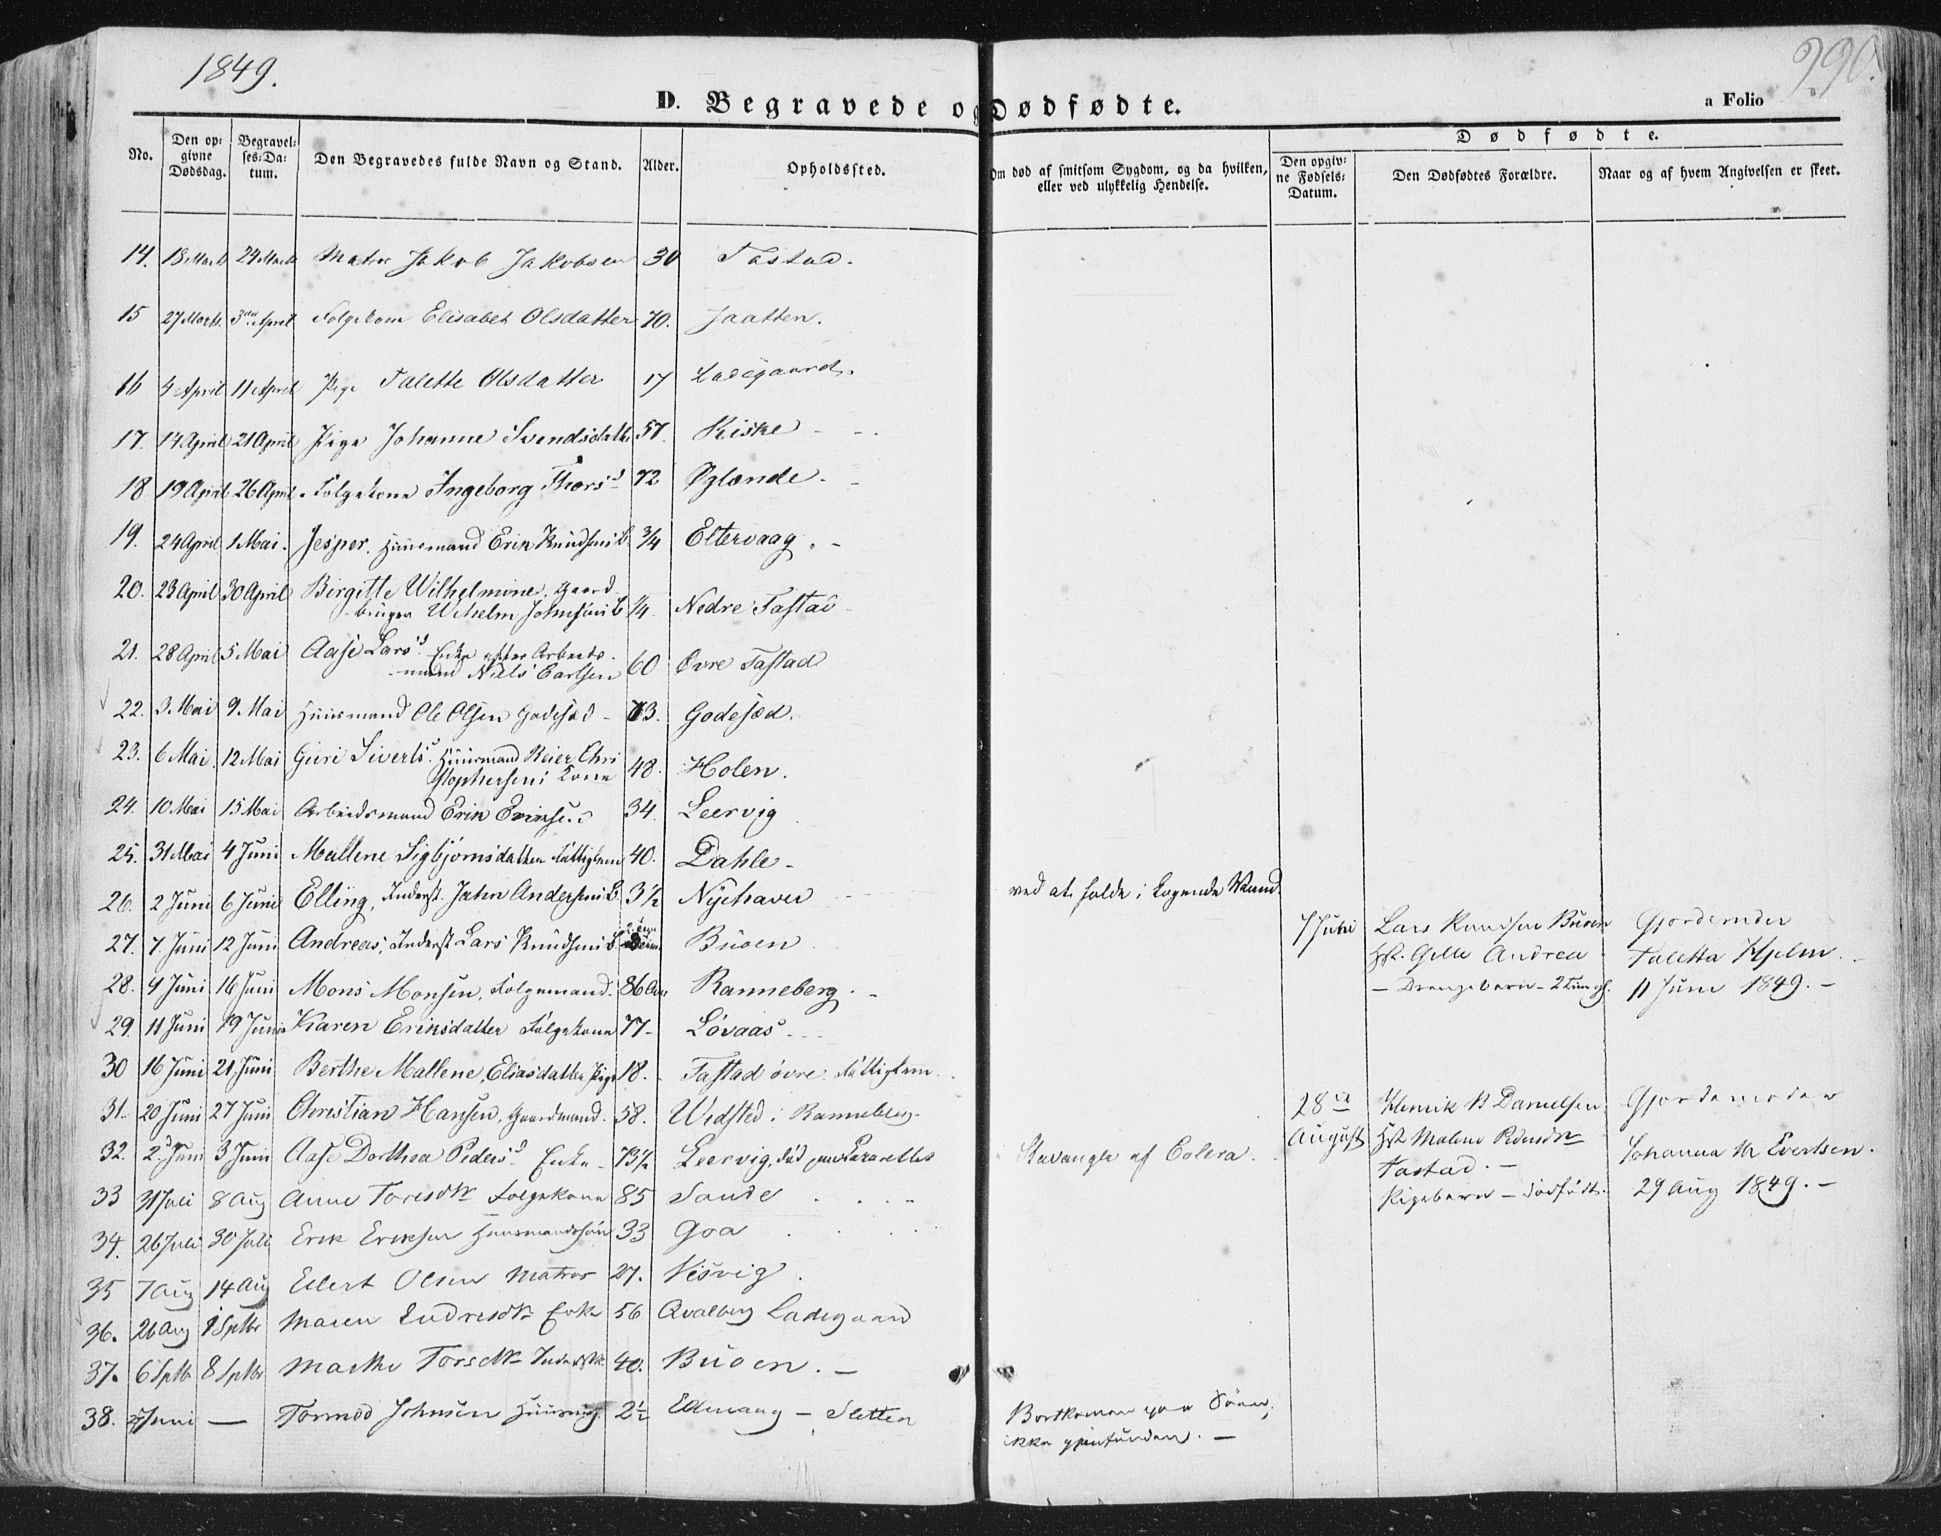 1849.
290.
D. Begravede og Dødfødte.
a Folio
No.
Den opgivne Dødsdag.
Begravelses-Datum.
Den Begravedes fulde Navn og Stand.
Alder.
Opholdssted.
Om død af smitsom Sygdom, og da hvilken, eller ved ulykkelig Hendelse.
Dødfødte.
Den opgivne Fødsels-Datum.
Den Dødfødtes Forældre.
Naar og af hvem Angivelsen er skeet.
14. 18 Marts 24 Marts Matros Jakob Jakobsen 30 Tastad.
15 27 Marts. 3die April Folgekone Elisabet Olsdatter 70. Jaatten.
16 4 April 11 April Pige Talette Olsdatter 17 Ladegaard.
17. 14 April 21 April Pige Johanne Svendsdatter 57. Kiske
18 19 April 26 April Folgekone Ingeborg Thorsd 72 Øglænde.
19. 24 April 1 Mai. Jesper. Huusmand Erik Knudsens B. 3/4 Eltervaag.
20. 23 April 30 April Birgitte Wilhelmine, Gaard-
bruger Wilhelm Johnsens B 1/4. Nedre Tastad
21. 28 April 5 Mai Aase Larsd Enke efter Arbeids-
mand Niels Carlsen 60 Øvre Tastad
22. 3 Mai 9 Mai Huusmand Ole Olsen Godesed 73. Godesed.
23. 6 Mai 12 Mai Guri Sivertsd. Huusmand Reier Chri
stophersens Kone 48. Holen.
24. 10 Mai 15 Mai Arbeidsmand Erik Eriksen 34. Leervig
25. 31 Mai 4 Juni Mallene Sigbjørnsdatter Fattiglem 40. Dahle
26. 2 Juni 6 Juni Elling, Inderst. Jahn Andersens B. 3 1/2 Nyehaver ved at falde i kogende Vand.
27. 7 Juni 12 Juni Andreas, Inderst Lars Knudsens B Buoen
7 Juni Lars Knudsen Buoen Gjordemoder
Hst. Gille Andrea Taletta Hjelm.
Drengebarn - 2 11 Juni 1849.
28. 4 Juni 16 Juni Mons Monsen, Folgemand. 86 Aar Ranneberg.
29. 11 Juni 19 Juni Karen Eriksdatter Folgekone 77 Løvaas
30 16 Juni 21 Juni Berthe Mallene, Eliasdatter Pige 18. Tastad øvre. Fattiglem
31. 20 Juni 27 Juni Christian Hansen, Gaardmand. 58. Widsted i Ranneberg
28de August Henrik B Danielsen Gjordemoder
Hst Malene Pedersdtr Johanna M Evertsen.
Tastad. 29 Aug 1849.
Pigebarn - dødfødt.
32. 2 Juni 3 Juni Aase Dorthea Pedersd. Enke 73 1/2 Leervig, død paa Lazarettet Stavanger af Colera.
33 31 Juli 8 Aug Anne Toresdtr Folgekone 85 Sande
34. 26 Juli 30 Juli Erik Eriksen Huusmandssøn 33 Goa
35 7 Aug 14 Aug Eilert Olsen Matros 27. Visvig.
36. 26 Aug 1 Sptbr Maren Endresdtr Enke 56 Qvalberg Ladegaard
37. 6 Sptbr 8 Sptbr Marthe Torsdtr 40. Buoen.
38. Juni Tormod Johnsen 2 1/2 - Sletten Bortkommen paa Søen,
ikke gjenfunden.